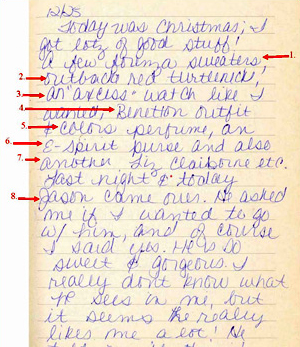 12/25
Today was Christmas, I
got lotz of good stuff!
a few sweaters, 1.
2. outback red turtleneck,
3. an "axcess" watch like I
4. wanted, Benetton outfit
5. & colors perfume, an
6. E-spirit purse and also
7. another Liz Claiborne etc.
Last night & today
8. Jason came over. He asked
me if I wanted to go
w/ him, and of course
I said yes. He is so
sweet & gorgeous. I
really don't know what
He sees in me, but
it seems he really
likes me a lot! He